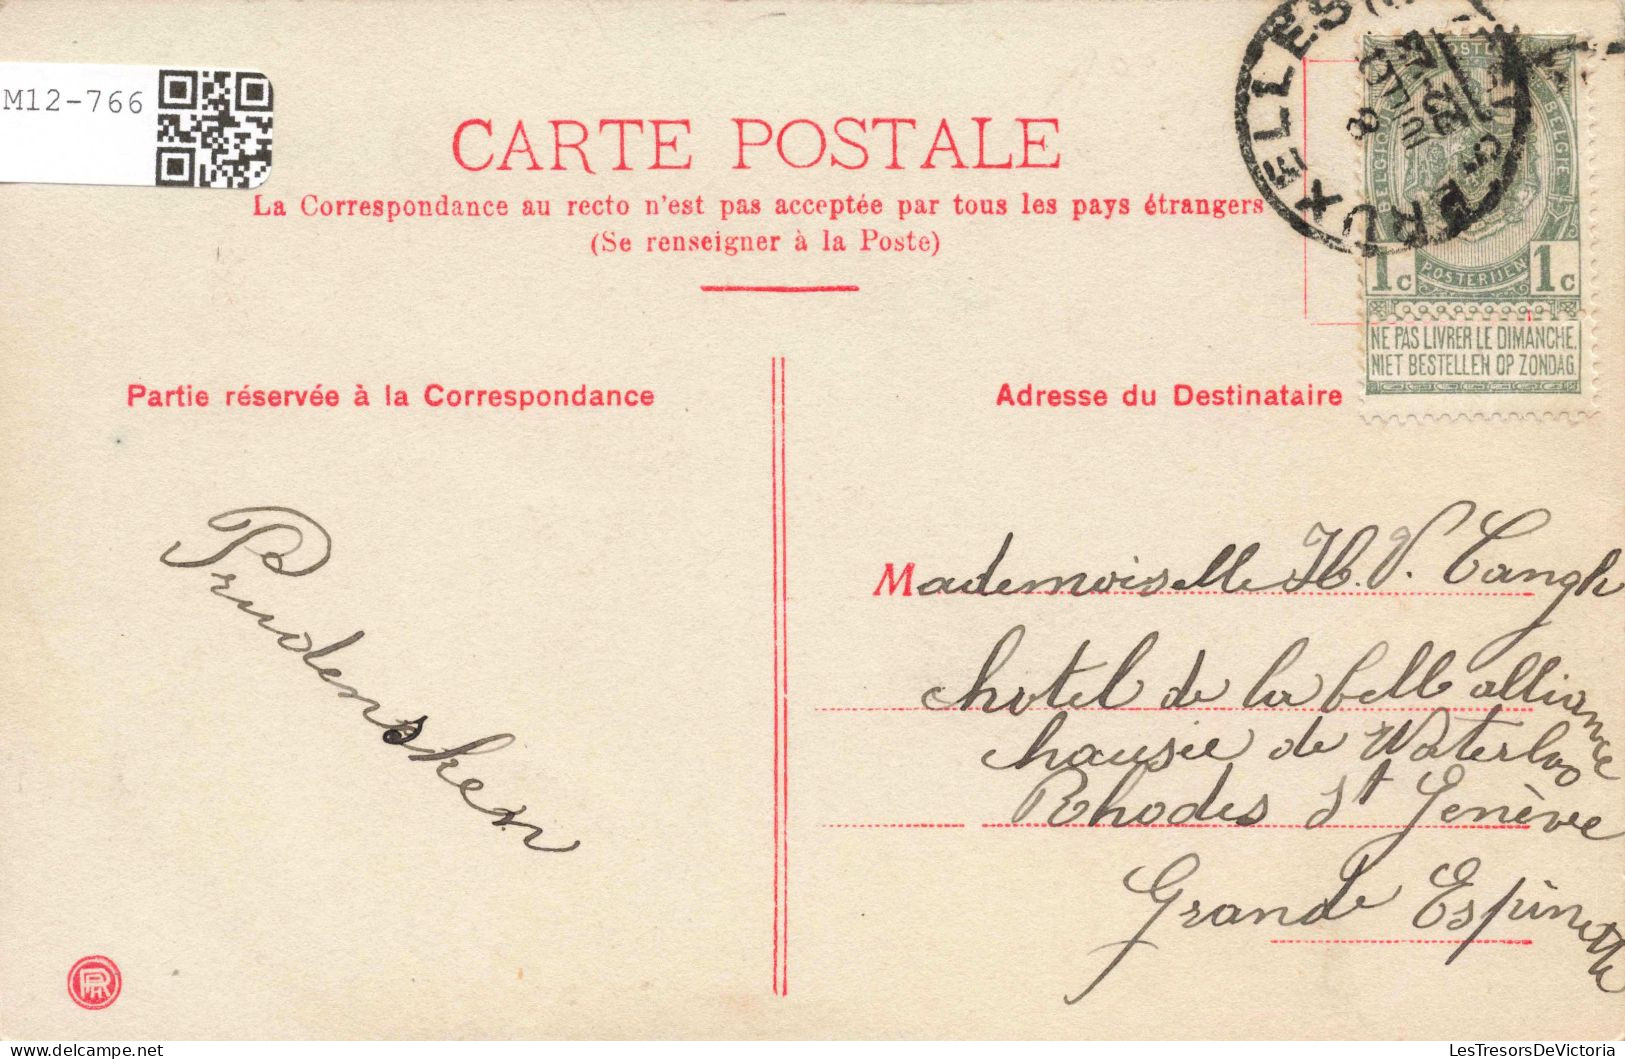 M12-766
CARTE POSTALE
La Correspondance au recto n'est pas acceptée par tous les pays étrangers
(Se renseigner à la Poste)
BRUXELLES
8
JUIL
12
POSTERIJEN
BELGIQUE
BELGIE
1c 1c
NE PAS LIVRER LE DIMANCHE.
NIET BESTELLEN OP ZONDAG.
Partie réservée à la Correspondance
Adresse du Destinataire
Prudensken
Mademoiselle H. V. Cangh
hotel de la belle alliance
chausie de Waterloo
Rhodes St Genève
Grande Espinette
LesTresorsDeVictoria.com